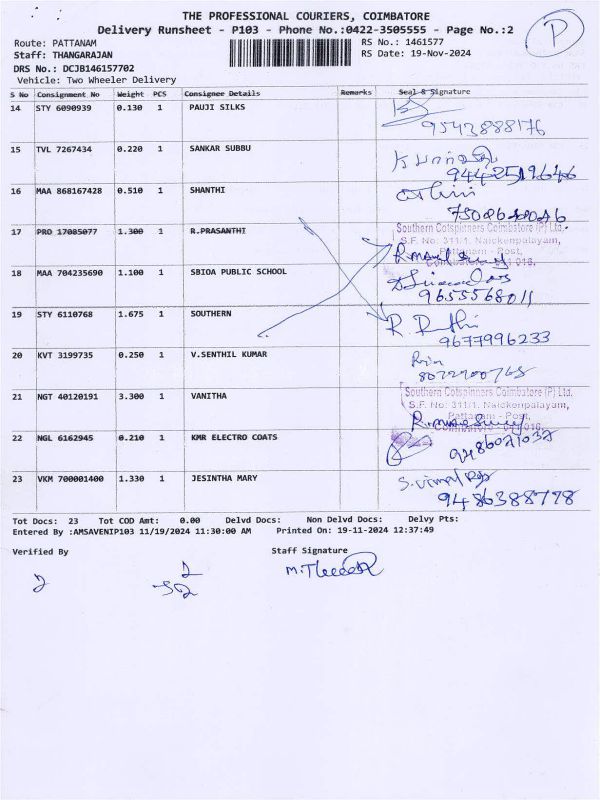 THE PROFESSIONAL COURIERS, COIMBATORE
Delivery Runsheet - P103 - Phone No.:0422-3505555 - Page No.:2
P
Route: PATTANAM
RS No.: 1461577
Staff: THANGARAJAN
RS Date: 19-Nov-2024
DRS No.: DCJB146157702
Vehicle: Two Wheeler Delivery
S No Consignment No Weight PCS Consignee Details Remarks Seal & Signature
14 STY 6090939 0.130 1 PAUJI SILKS
9543888176
15 TVL 7267434 0.220 1 SANKAR SUBBU
16 MAA 868167428 0.510 1 SHANTHI
17 PRO 17085077 1.300 1 R.PRASANTHI
Southern Cotspinners Coimbatore (P) Ltd.
S.F. No: 311/1, Naickenpalayam,
Pattanam - Post,
Coimbatore - 641 016.
18 MAA 704235690 1.100 1 SBIOA PUBLIC SCHOOL
9655568011
19 STY 6110768 1.675 1 SOUTHERN
9677996233
20 KVT 3199735 0.250 1 V.SENTHIL KUMAR
21 NGT 40120191 3.300 1 VANITHA
Southern Cotspinners Coimbatore (P) Ltd.
S.F. No: 311/1, Naickenpalayam,
Pattanam - Post,
Coimbatore - 641 016.
22 NGL 6162945 0.210 1 KMR ELECTRO COATS
9486071037
23 VKM 700001400 1.330 1 JESINTHA MARY
9486388778
Tot Docs: 23 Tot COD Amt: 0.00 Delvd Docs: Non Delvd Docs: Delvy Pts:
Entered By :AMSAVENIP103 11/19/2024 11:30:00 AM Printed On: 19-11-2024 12:37:49
Verified By Staff Signature